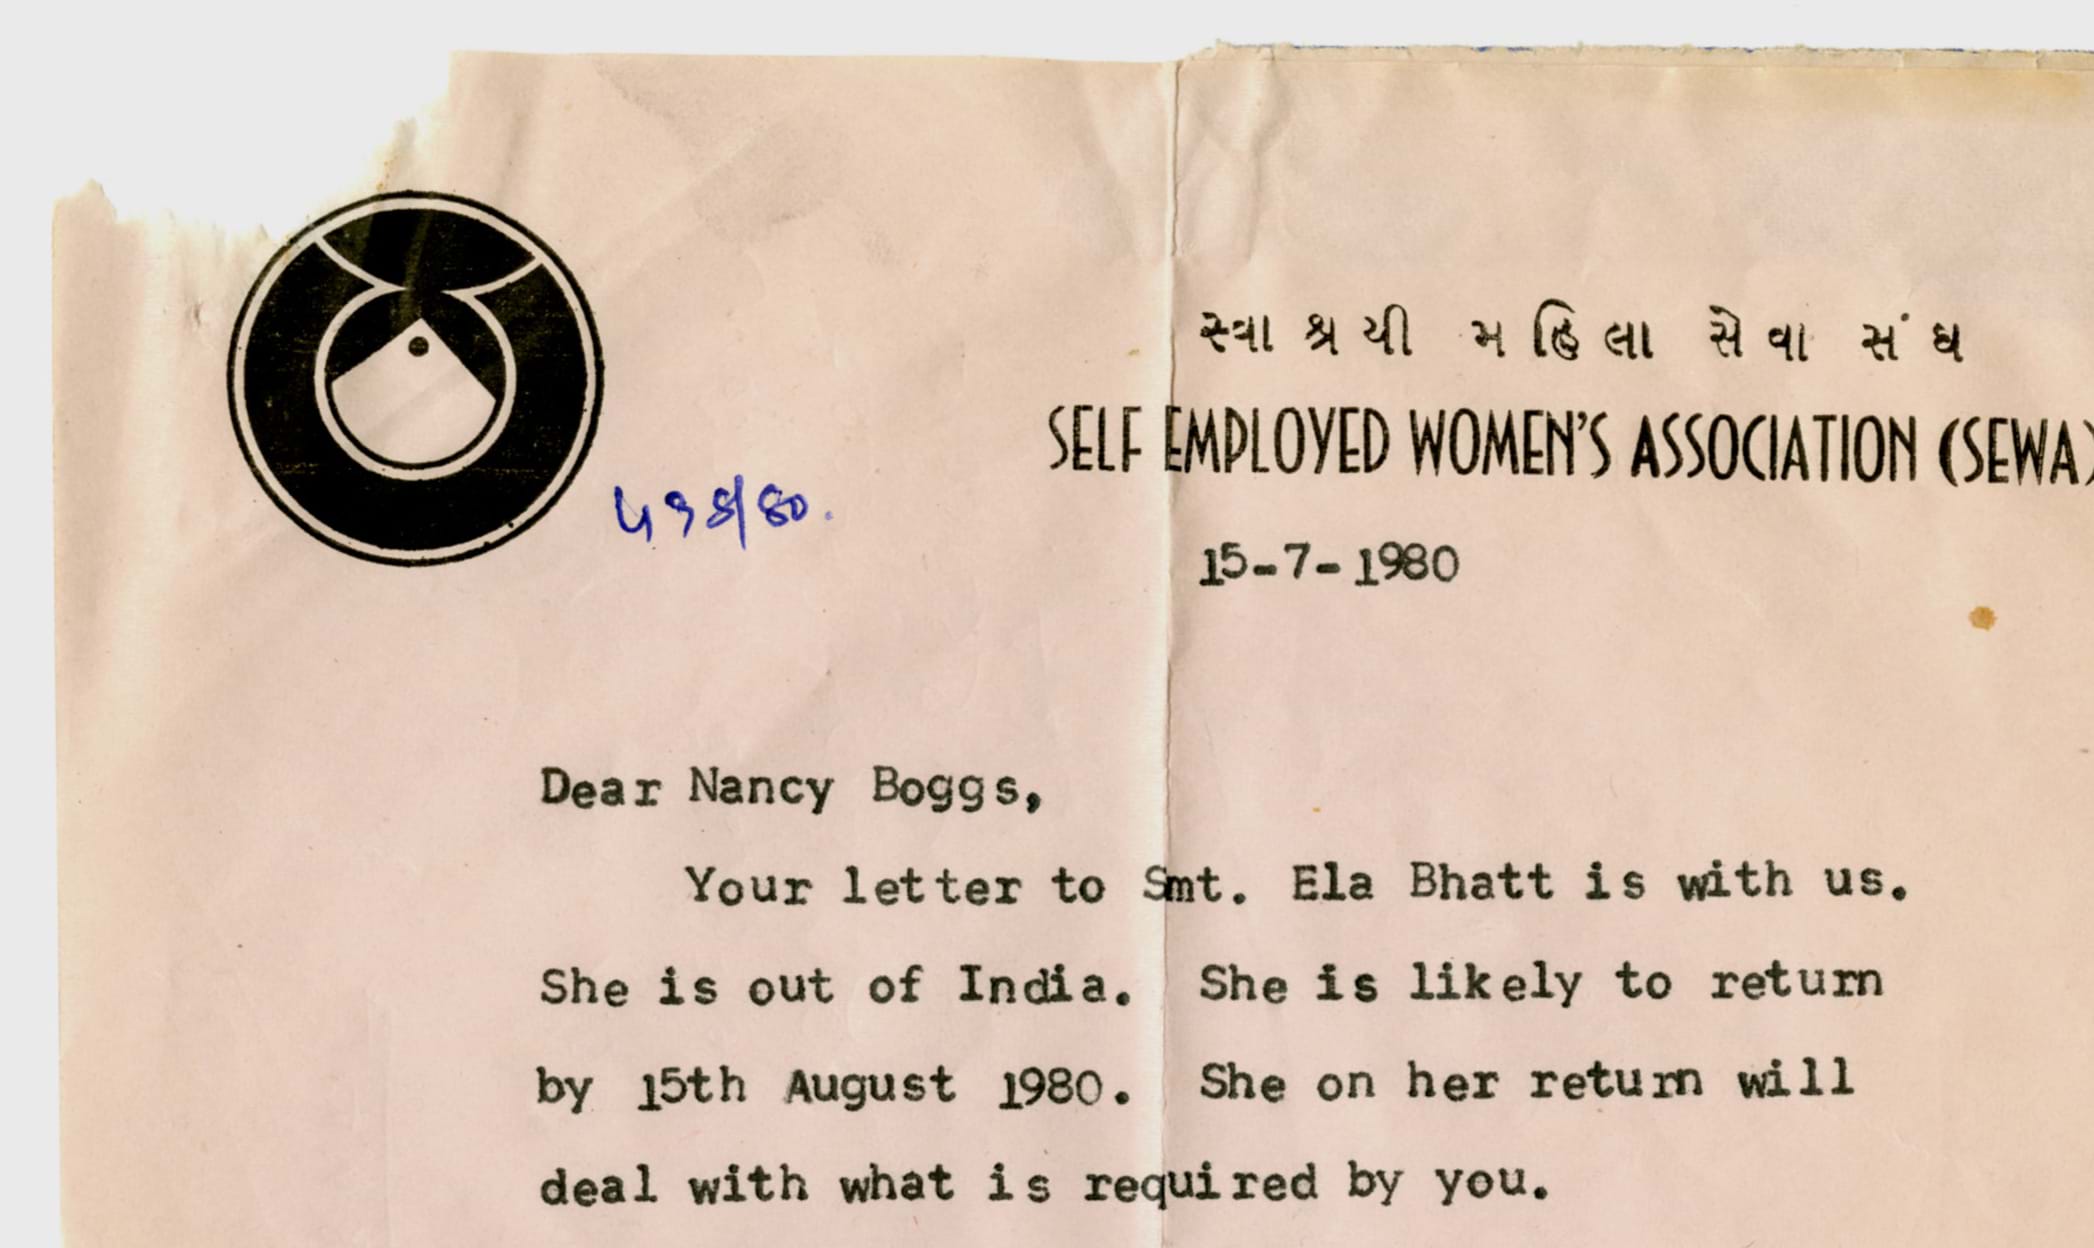 સ્વાશ્રયી મહિલા સેવા સંઘ
SELF EMPLOYED WOMEN'S ASSOCIATION (SEWA)
15-7-1980
Dear Nancy Boggs,
Your letter to Smt. Ela Bhatt is with us.
She is out of India. She is likely to return
by 15th August 1980. She on her return will
deal with what is required by you.